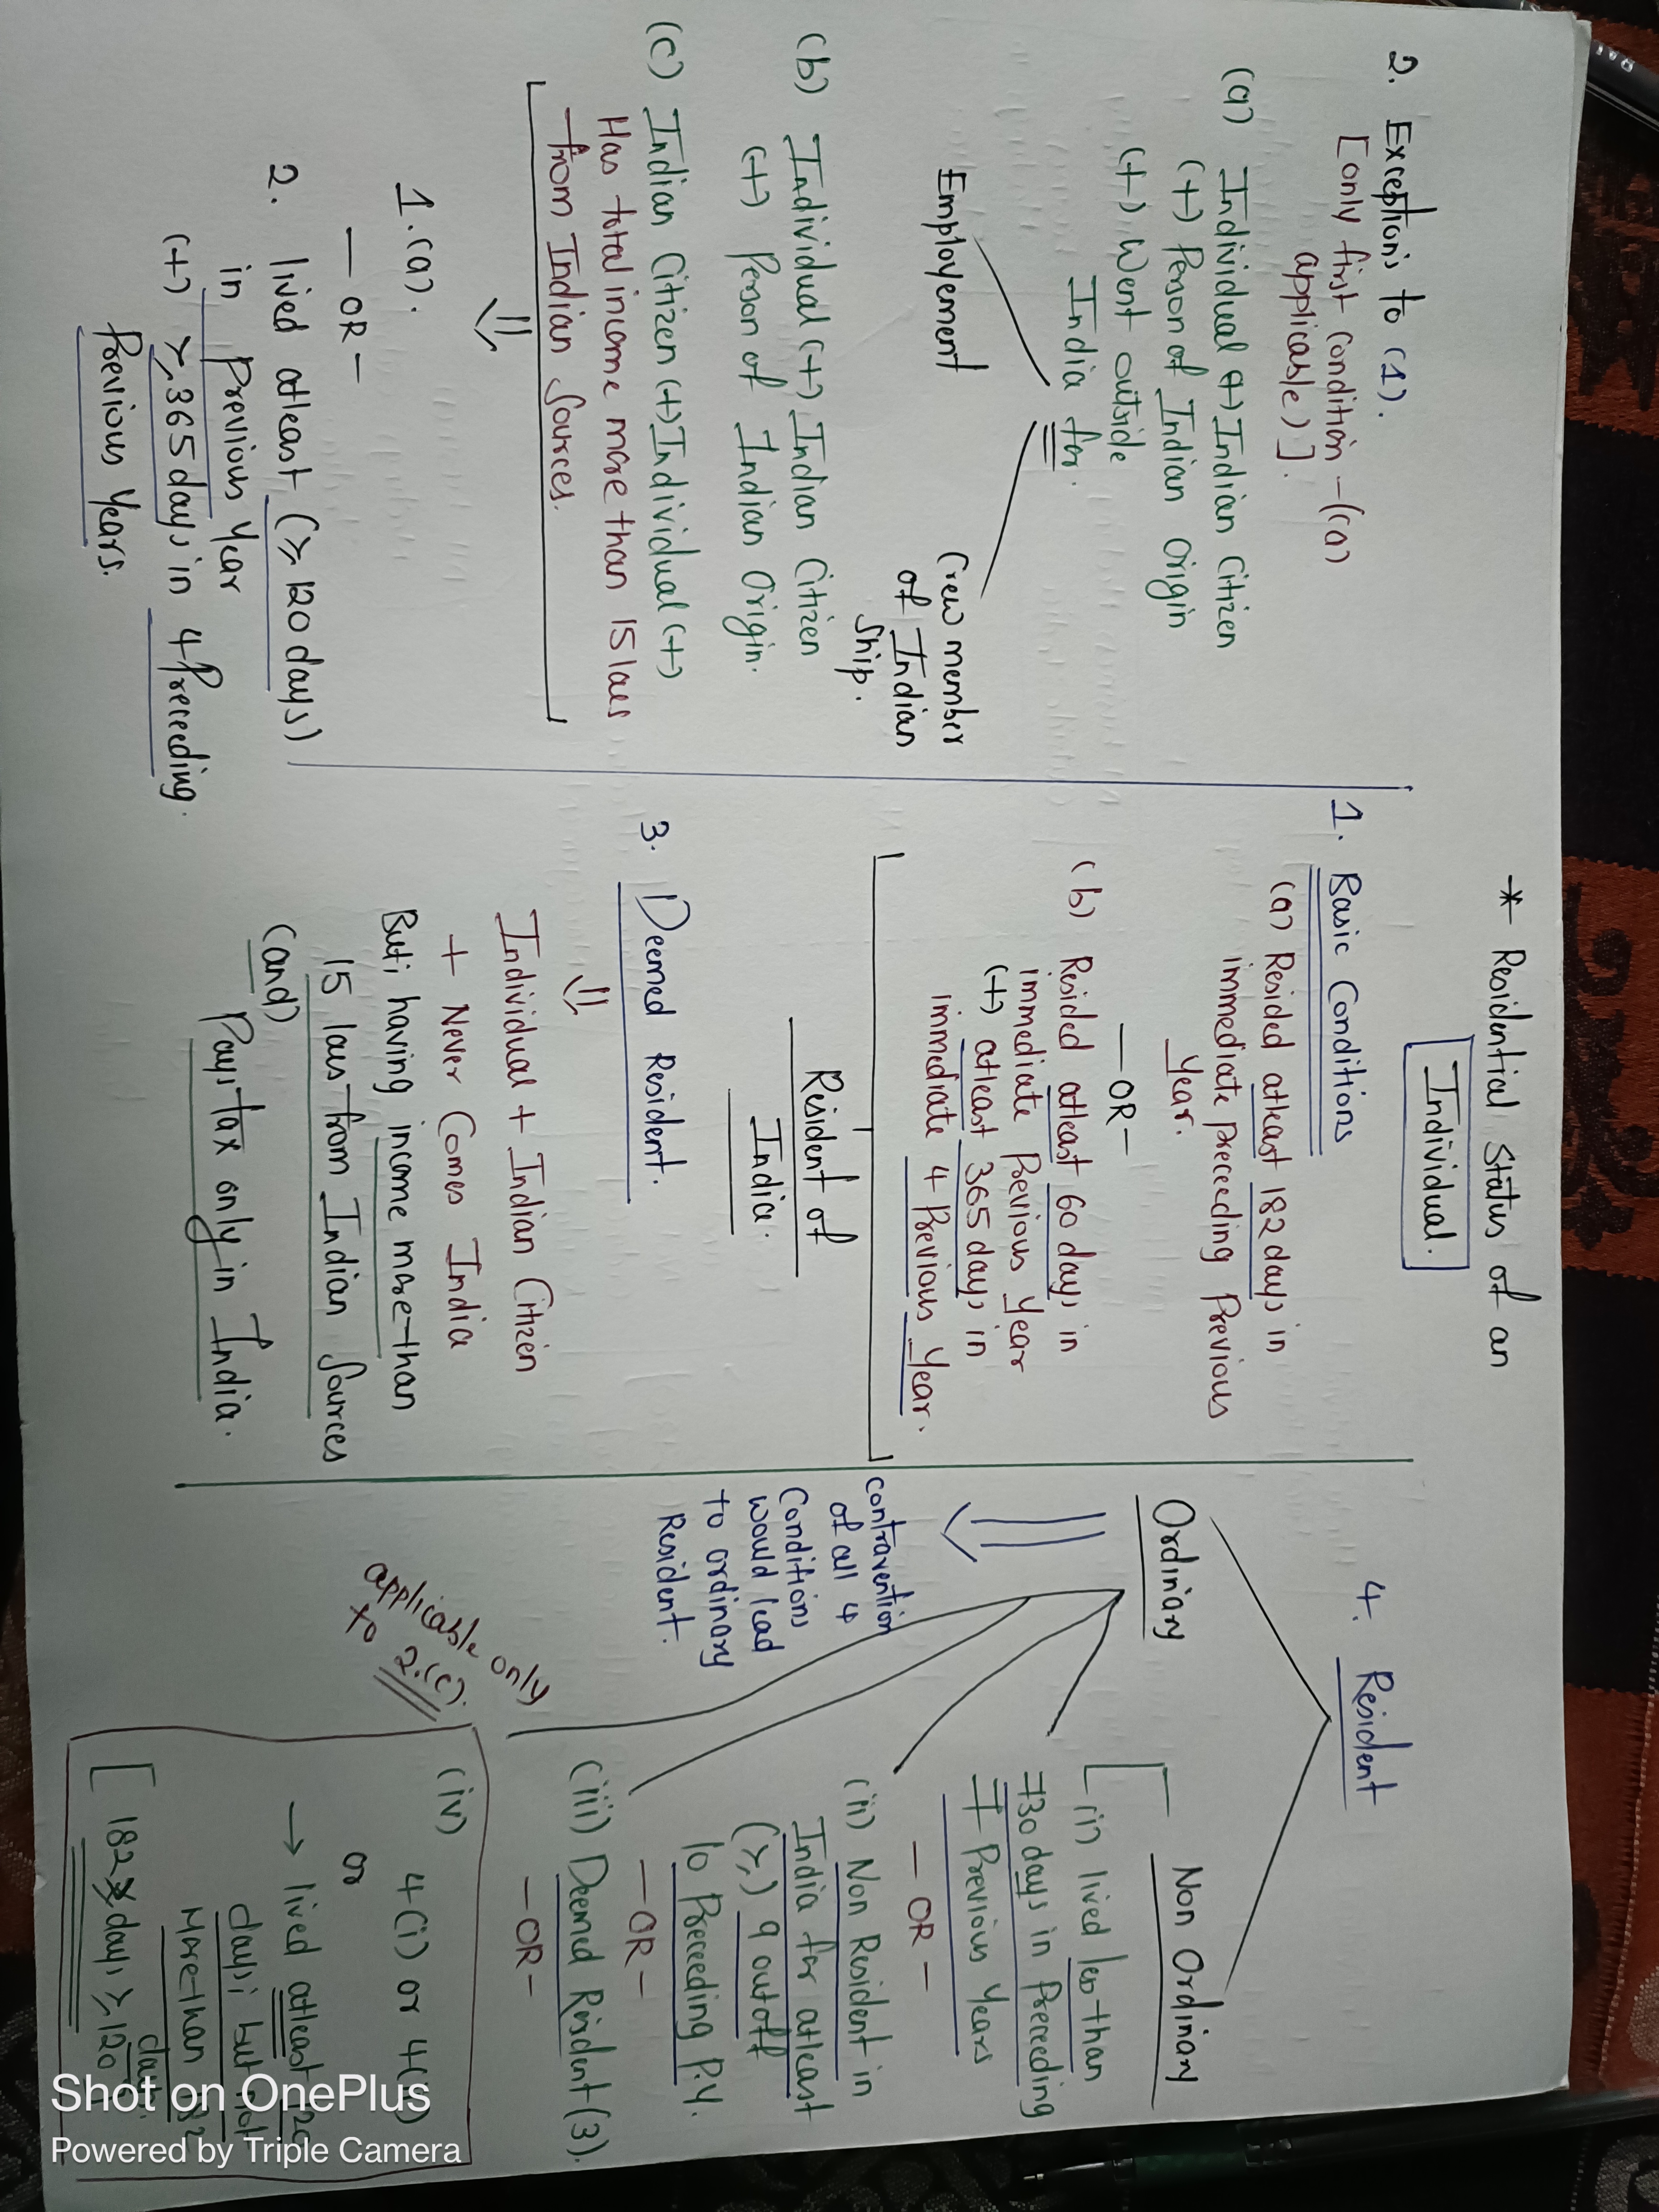 * Residential Status of an
Individual.
2. Exceptions to (1).
[only first Condition -(a)
applicable)].
(a) Individual (+) Indian Citizen
(+) Person of Indian Origin
(+) Went outside
India for.
Employement
Crew member
of Indian
Ship.
(b) Individual (+) Indian Citizen
(+) Person of Indian Origin.
(c) Indian Citizen (+) Individual (+)
Has total income more than 15 lacs
from Indian Sources.
1.(a).
— OR —
2. lived atleast (≥ 120 days)
in Previous Year
(+) ≥ 365 days in 4 Preceeding
Previous Years.
1. Basic Conditions
(a) Resided atleast 182 days in
immediate preceeding Previous
Year.
— OR —
(b) Resided atleast 60 days in
immediate Previous Year
(+) atleast 365 days in
immediate 4 Previous Year.
Resident of
India.
3. Deemed Resident.
Individual + Indian Citizen
+ Never Comes India
But; having income more than
15 lacs from Indian Sources
(and)
Pays tax only in India.
4. Resident
Ordiniary
Non Ordinary
contravention
of all 4
Conditions
would lead
to ordinary
Resident.
(i) lived less than
730 days in Preceeding
7 Previous Years
— OR —
(ii) Non Resident in
India for atleast
(≥) 9 out of
10 Preceeding P.Y.
— OR —
(iii) Deemed Resident (3).
— OR —
applicable only
to 2.(c).
(iv) 4(i) or 4(ii)
or
→ lived atleast 120
days; but not
More than 182
days
[182 days ≥ 120
Shot on OnePlus
Powered by Triple Camera